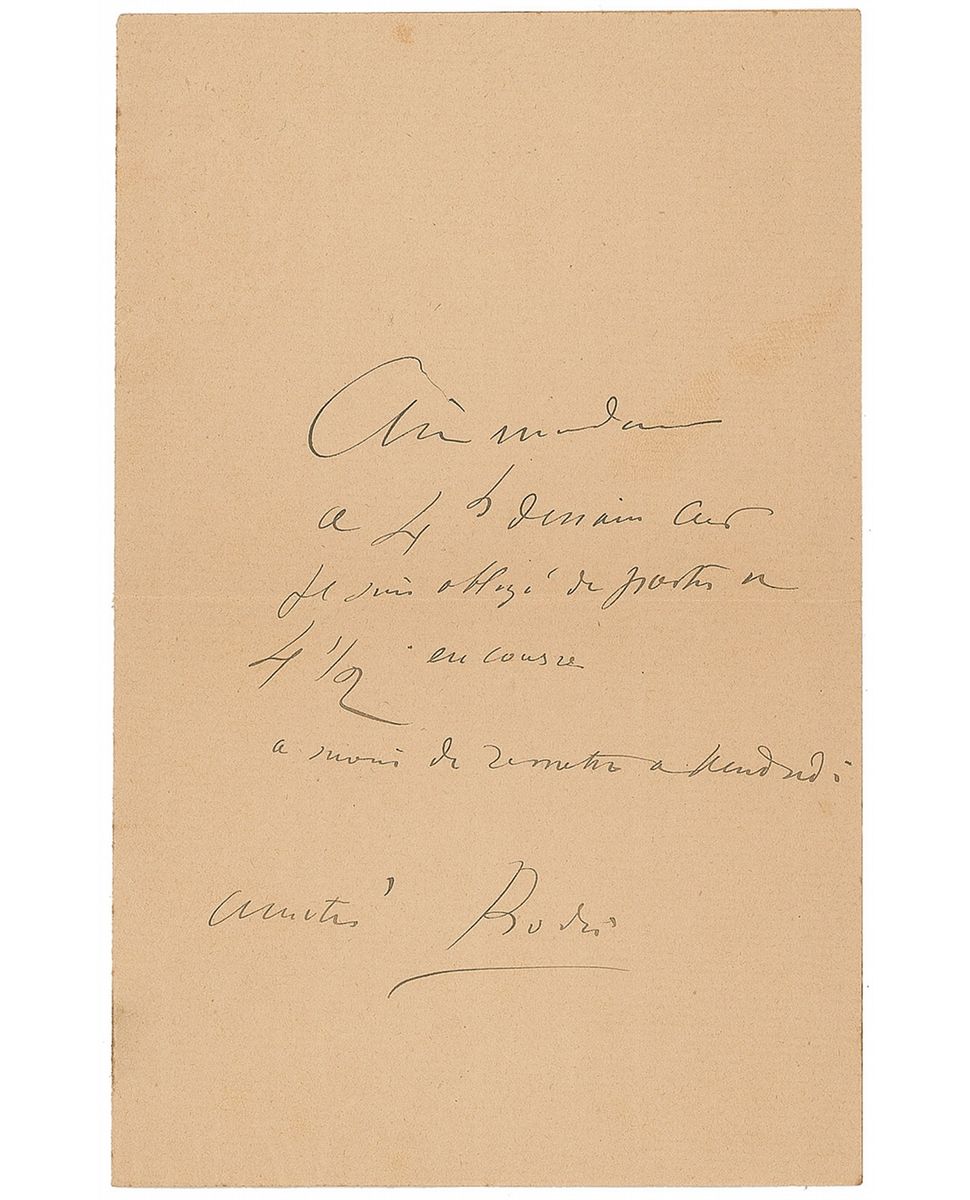 Chère madame
a 4 h demain car
je suis obligé de partir a
4 1/2 en course
a moins de remettre a vendredi
amitiés Rodin